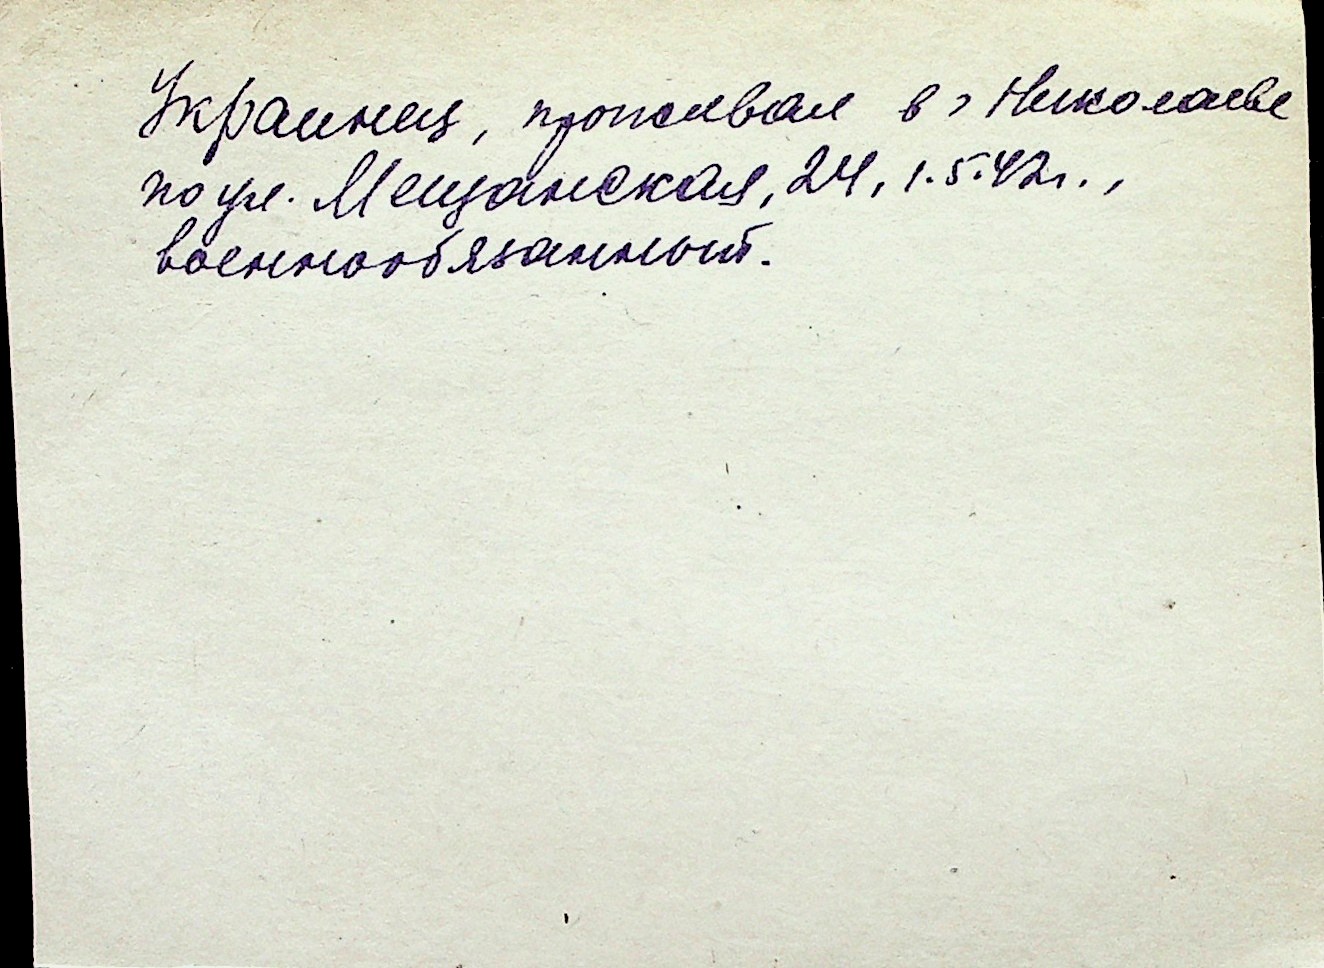 Украинец, проживал в г Николаеве
по ул. Мещанская, 24, 1.5.42г.,
военнообязанный.